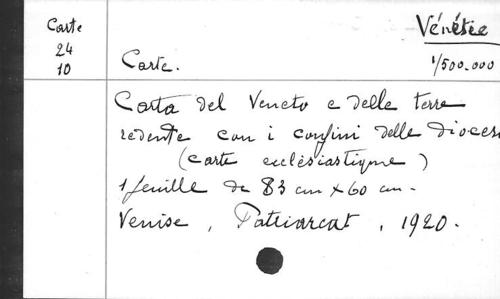 Carte
24
10
Vénétie
Carte.
1/500.000
Carta del Veneto e delle terre
redente con i confini delle diocesi
(carte ecclésiastique)
1 feuille de 83 cm x 60 cm.
Venise, Patriarcat, 1920.